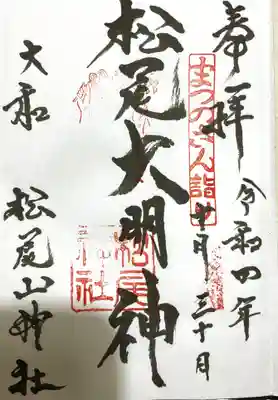 奉拝
令和四年
十月三十日
まつのさん詣
松尾大明神
大和
松尾山神社